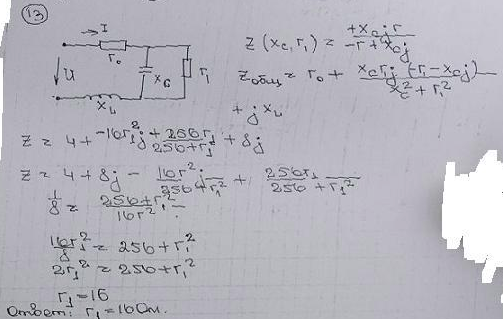 13
I
r₀
U
x_c
r₁
x_L
z (x_c, r₁) = +x_c j r / -r + x_c j
z общ = r₀ + x_c r₁ j (-r₁ - x_c j) / x_c² + r₁²
+ j x_L
z = 4 + -16r₁² j + 256r₁ / 256 + r₁² + 8j
z = 4 + 8j - 16r² j / 256 + r₁² + 256r₁ / 256 + r₁²
1/8 = 256 + r₁² / 16r²
16r₁² / 8 = 256 + r₁²
2r₁² = 256 + r₁²
r₁ = 16
Ответ: r₁ = 16 Ом.